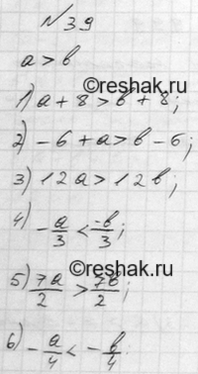 №39
a > b
1) a + 8 > b + 8;
2) -6 + a > b - 6;
3) 12a > 12b;
4) -a/3 < -b/3;
5) 7a/2 > 7b/2;
6) -a/4 < -b/4.
©reshak.ru
©reshak.ru